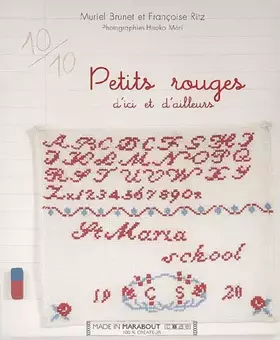 Muriel Brunet et Françoise Ritz
Photographies Hiroko Mori
10/10
Petits rouges
d'ici et d'ailleurs
A B C D E F G H I
J K L M N O P Q
R S T U V W X Y
Z x 1 2 3 4 5 6 7 8 9 0 z
St Maria
school
19 C S 20
MADE IN MARABOUT
100% CRÉATEUR